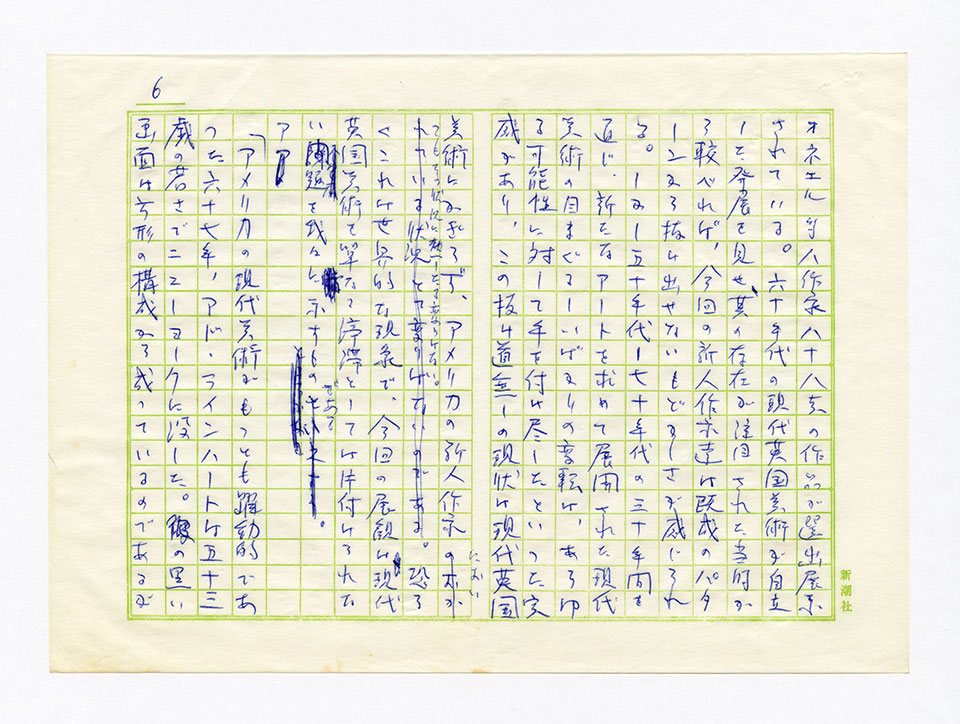 6
オネエル等八作家八十八点の作品が選出展示
されている。六十年代の現代英国美術が自立
した発展を見せ、其の存在が注目された当時か
ら較べれば、今回の新人作家達は既成のパタ
ーンから抜け出せないもどかしさが感じられ
る。しかし五十年代―七十年代の三十年間を
通じ、新たなアートを求めて展開された現代
美術の目まぐるしいばかりの変転は、あらゆ
る可能性に対して手を付け尽したといった実
感があり、この抜け道無しの現状は現代英国
美術にかぎらず、アメリカの新人作家の
においても その状況に
われている状況とて変りはないのである。恐ら
くこれは世界的な現象で、今回の展観は現代
英国美術を単なる停滞としては片付けられな
い問題を我々に示すもの
である。
アア
「アメリカの現代美術がもっとも躍動的であ
った六十七年、アド・ラインハートは五十三
歳の若さでニューヨークに没した。彼の黒い
画面は方形の構成から成っているのであるが
新潮社